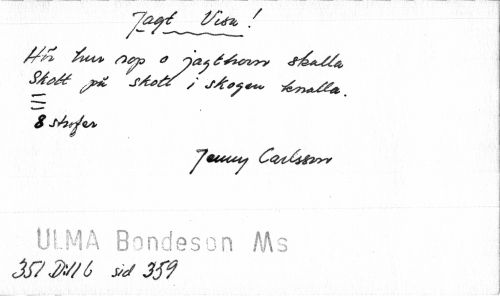 Jagt Visa!
Hör hur rop o jagthorn skalla
Skott på skott i skogen knalla.
8 strofer
Jenny Carlsson
ULMA Bondeson Ms
351 Dill 6 sid 359